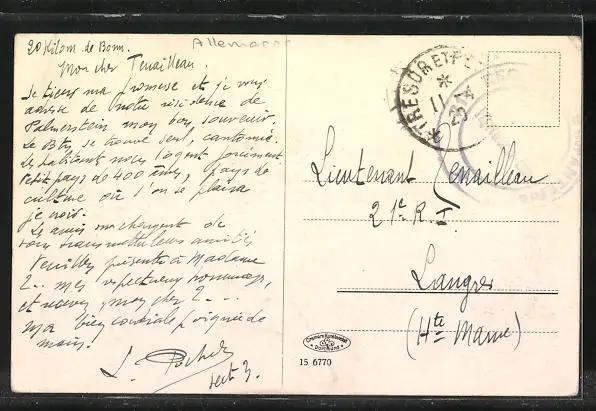 20 Kilom. de Bonn.
Allemagne
Mon cher Tenailleau.
Je tiens ma promesse et je vous
adresse de notre résidence de
Palmerstein mon bon souvenir.
Le Btn se trouve seul, cantonné.
Les habitants nous logent forcément
Petit pays de 400 âmes, pays de
culture où l'on se plaira
je crois.
Les amis me chargent de
vous transmettre leurs amitiés
Veuillez présenter à Madame
T... mes respectueux hommages,
et recevez, mon cher T...
ma bien cordiale poignée de
main.
sect 3.
TRESOR ET POSTES
11
Lieutenant Tenailleau
21e R. I.
Langres
(Hte Marne)
Dortmund
15 6770